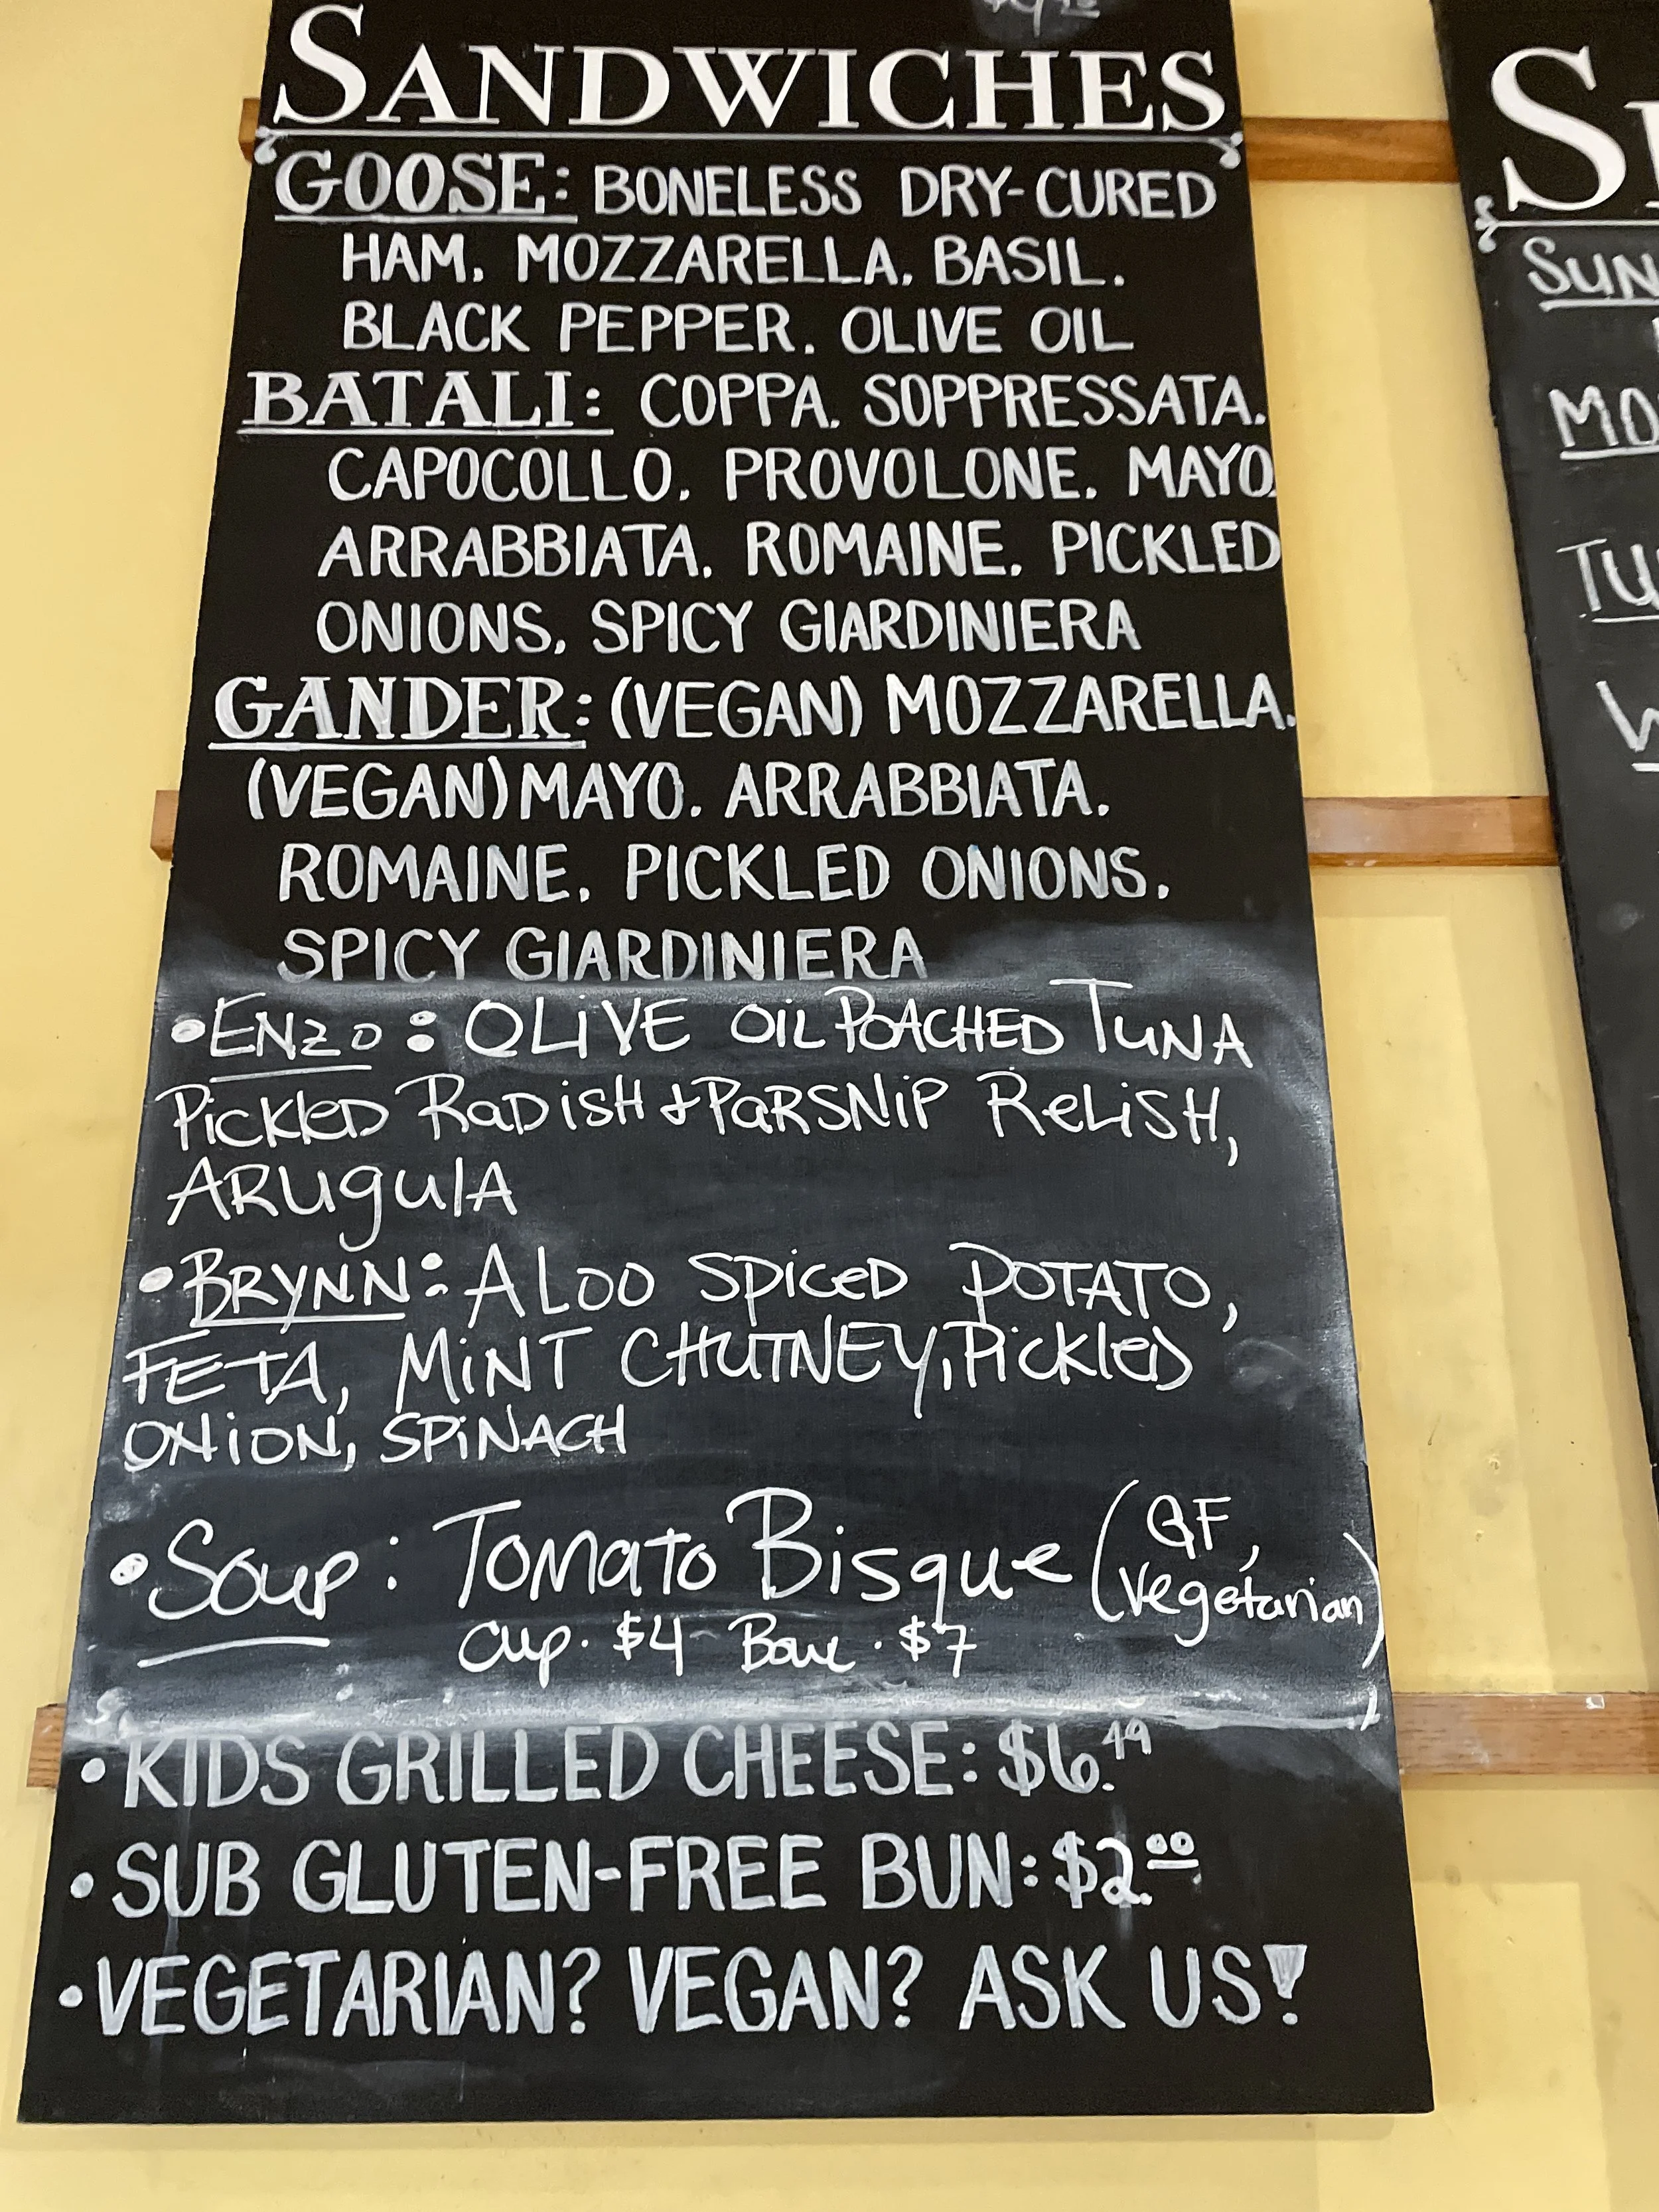 SANDWICHES
GOOSE: BONELESS DRY-CURED
HAM, MOZZARELLA, BASIL,
BLACK PEPPER, OLIVE OIL
BATALI: COPPA, SOPPRESSATA,
CAPOCOLLO, PROVOLONE, MAYO,
ARRABBIATA, ROMAINE, PICKLED
ONIONS, SPICY GIARDINIERA
GANDER: (VEGAN) MOZZARELLA,
(VEGAN) MAYO, ARRABBIATA,
ROMAINE, PICKLED ONIONS,
SPICY GIARDINIERA
• ENZO: OLIVE OIL POACHED TUNA
PICKLED RADISH & PARSNIP RELISH,
ARUGULA
• BRYNN: ALOO SPICED POTATO,
FETA, MINT CHUTNEY, PICKLED
ONION, SPINACH
• Soup: Tomato Bisque (GF, Vegetarian)
Cup · $4 Bowl · $7
• KIDS GRILLED CHEESE: $6.49
• SUB GLUTEN-FREE BUN: $2.00
• VEGETARIAN? VEGAN? ASK US!
SUN
MO
TU
W